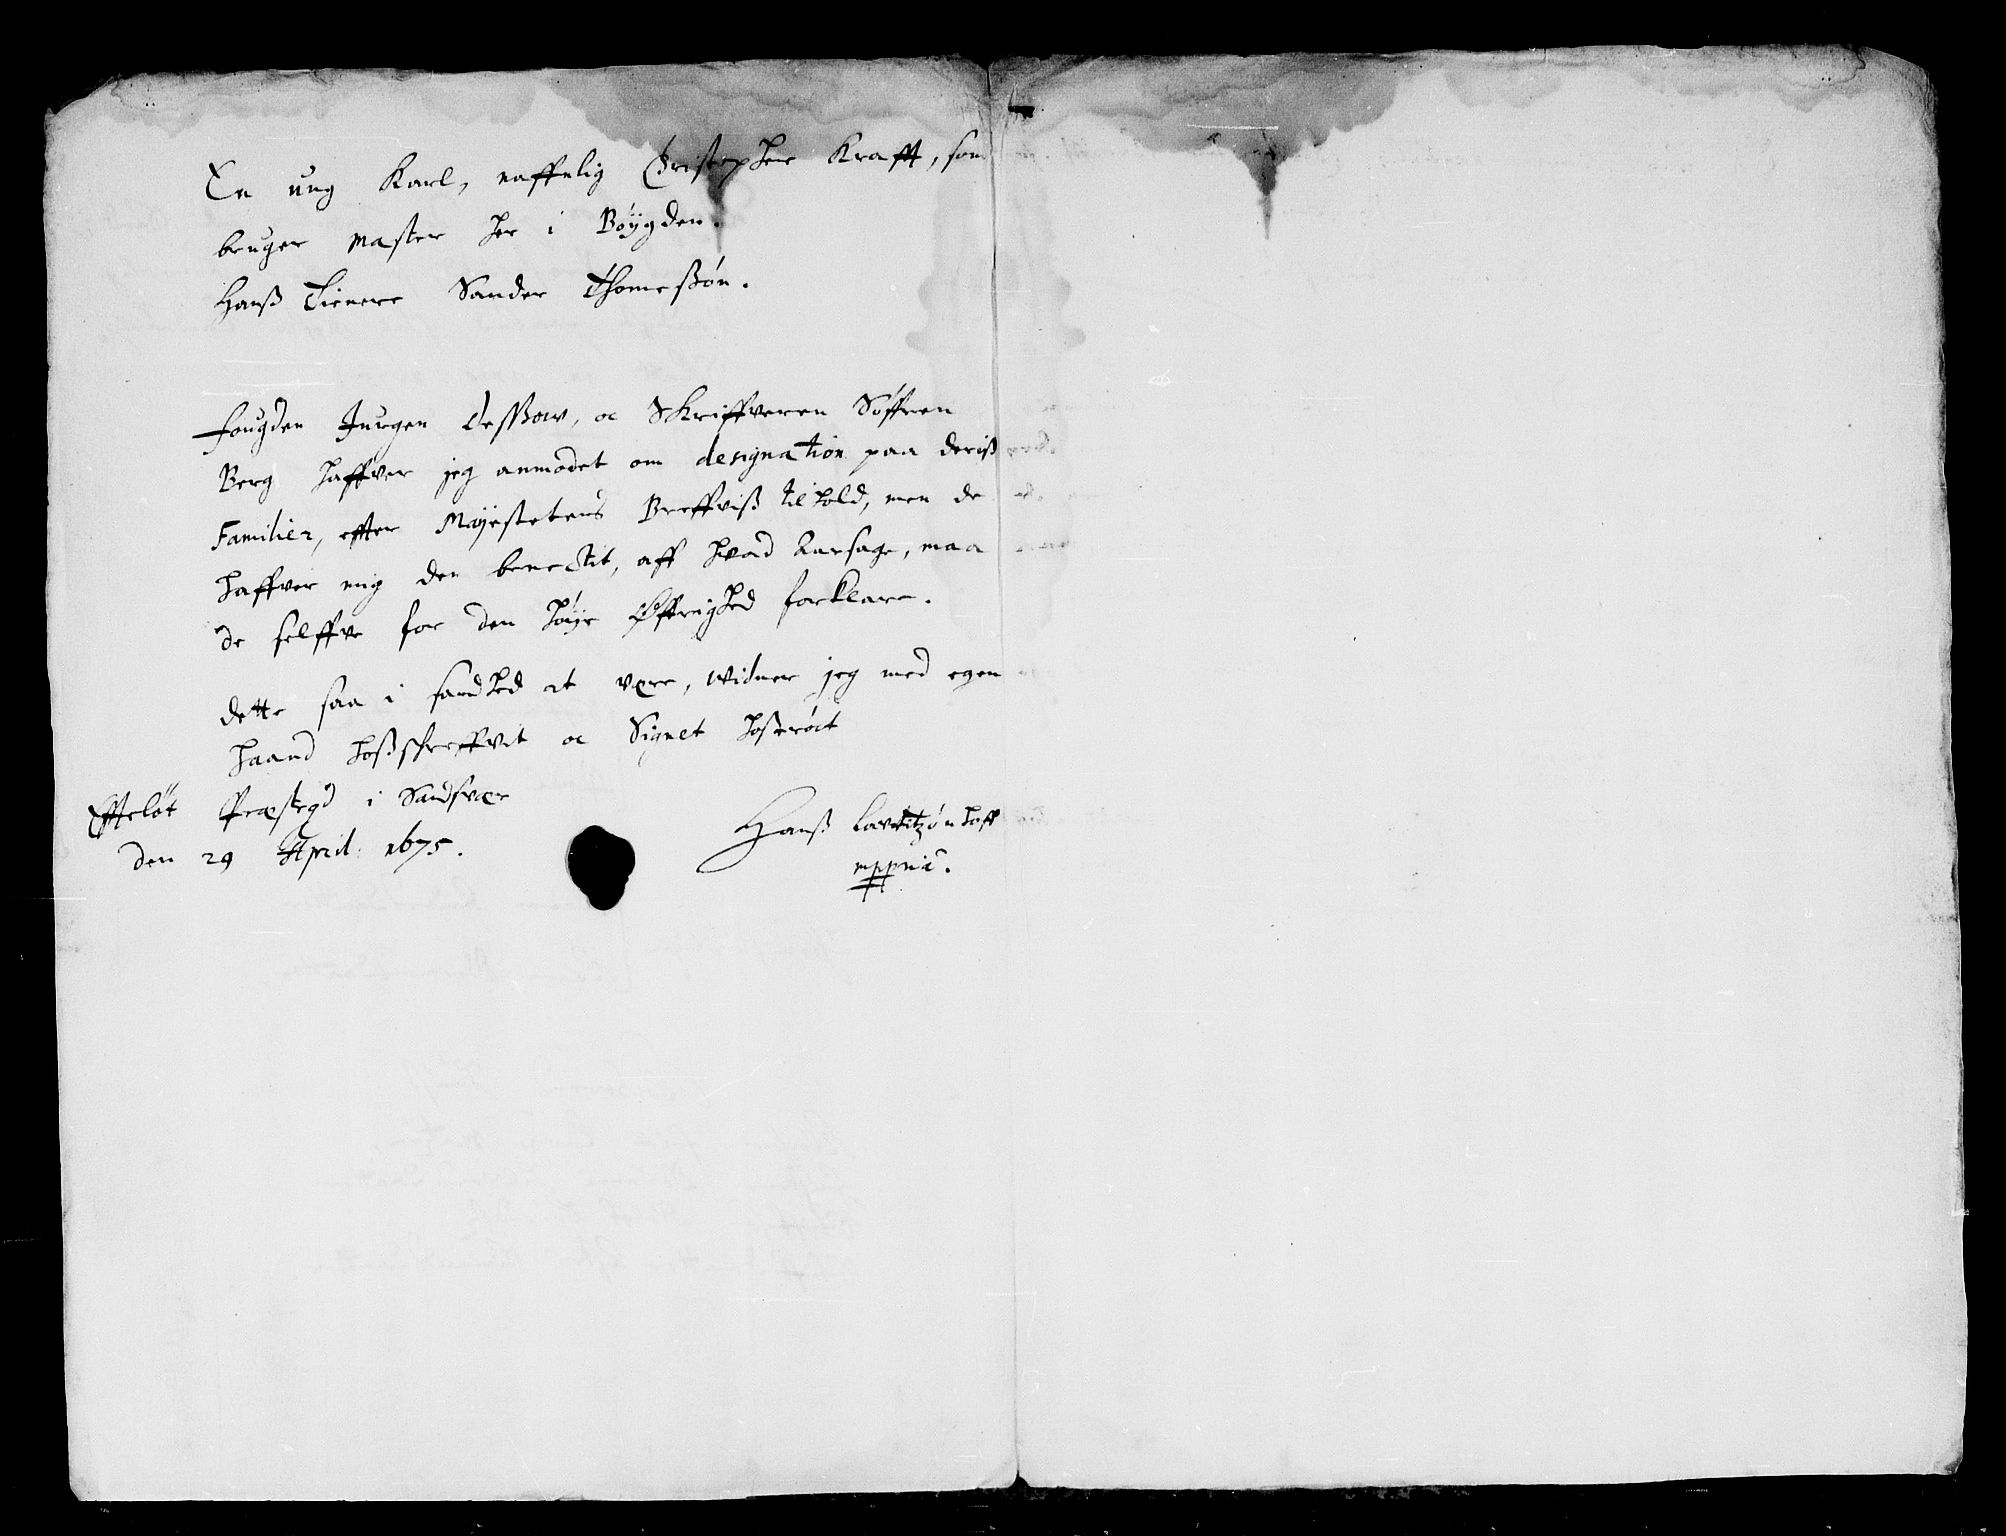 En ung Karl, naffnlig Christopher Krafft, som
bruger Master her i Bøygden.
Hanß Tienere Sander Thomeßøn.
fougden Jurgen Deßow, oc Skriffveren Søffren
Berg haffver jeg anmodet om designation paa deriß
Familier, effter Mayestetens Breffviß tilhold, men de
haffver mig den benectit, aff hvad Aarsage, maa
de selffve for den høye Øffrighed forklare.
dette saa i sandhed at være, widner jeg med egen
haand hoßschreffvet oc Signet hostrøct
Effteløt Præstegd i Sandsvær
den 29 April: 1675.
Hanß Lavritzøn hoff
mppria.